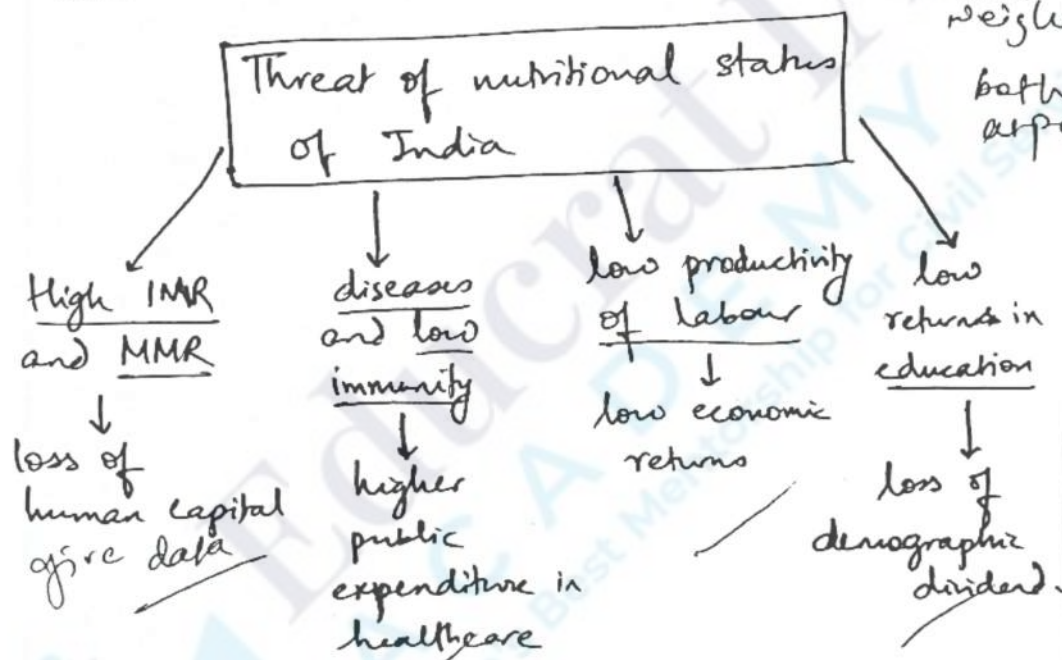 Threat of nutritional status
of India
High IMR
and MMR
loss of
human capital
give data
diseases
and low
immunity
higher
public
expenditure in
healthcare
low productivity
of labour
low economic
returns
low
returns in
education
loss of
demographic
dividend.
Educrat
ACADEMY
Best Mentorship for Civil